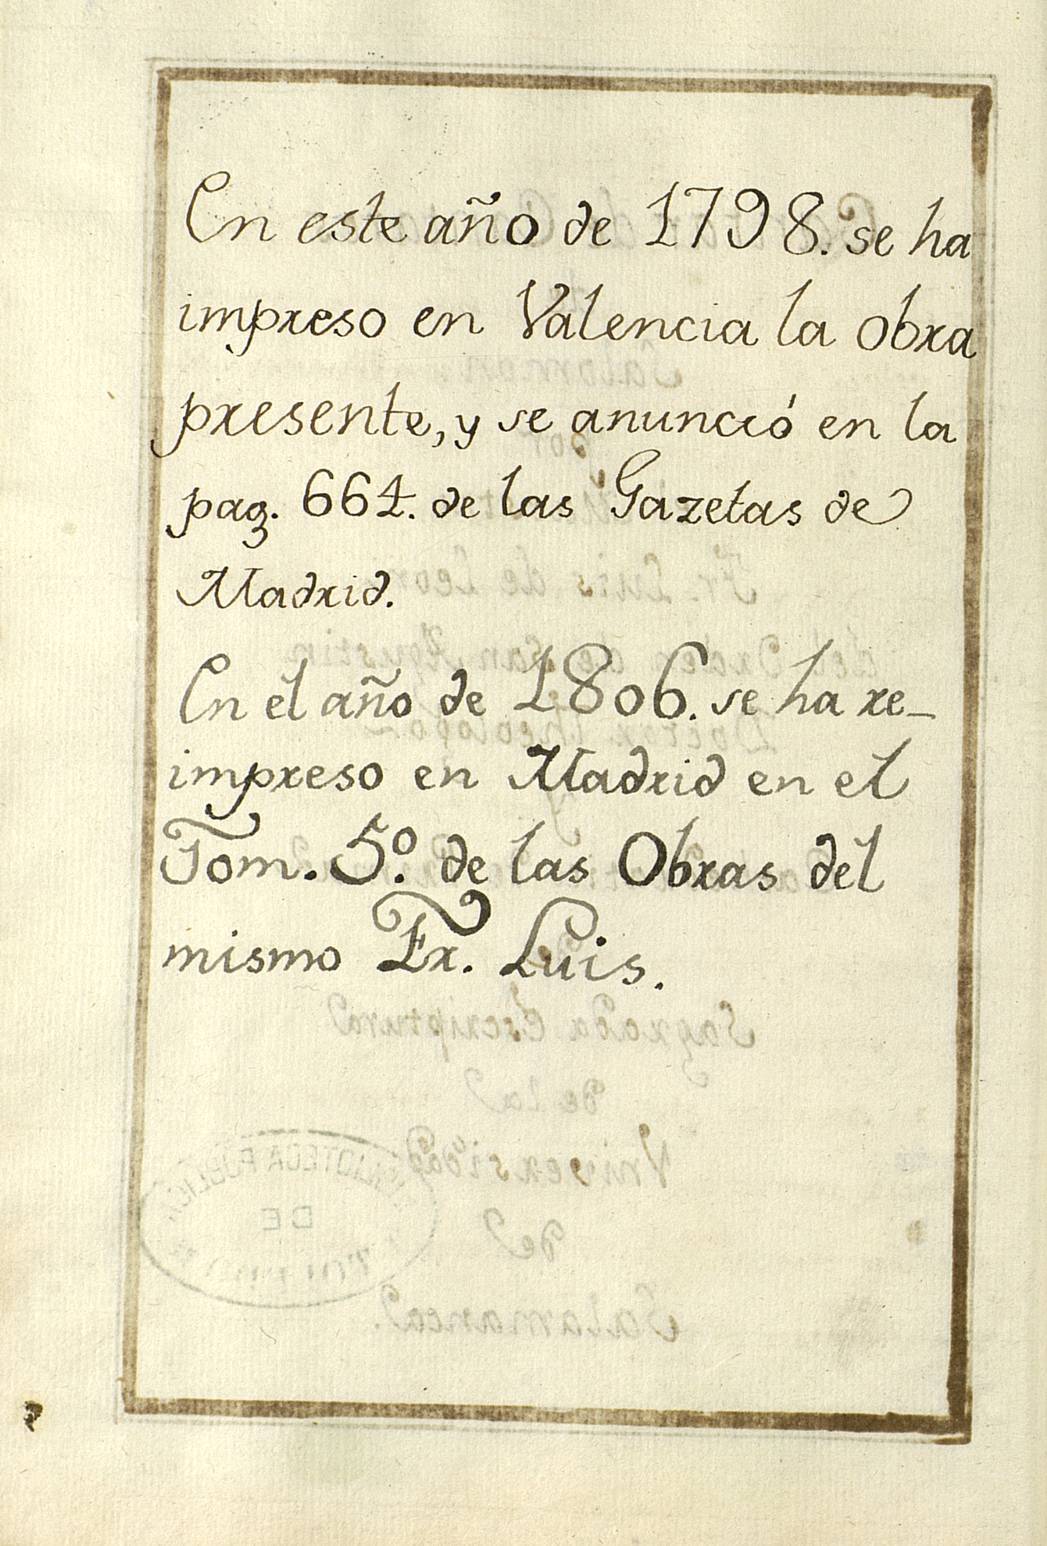 En este año de 1798. se ha
impreso en Valencia la obra
presente, y se anunció en la
pag. 664. de las Gazetas de
Madrid.
En el año de 1806. se ha re-
impreso en Madrid en el
Tom. 5.º de las Obras del
mismo Fr. Luis.